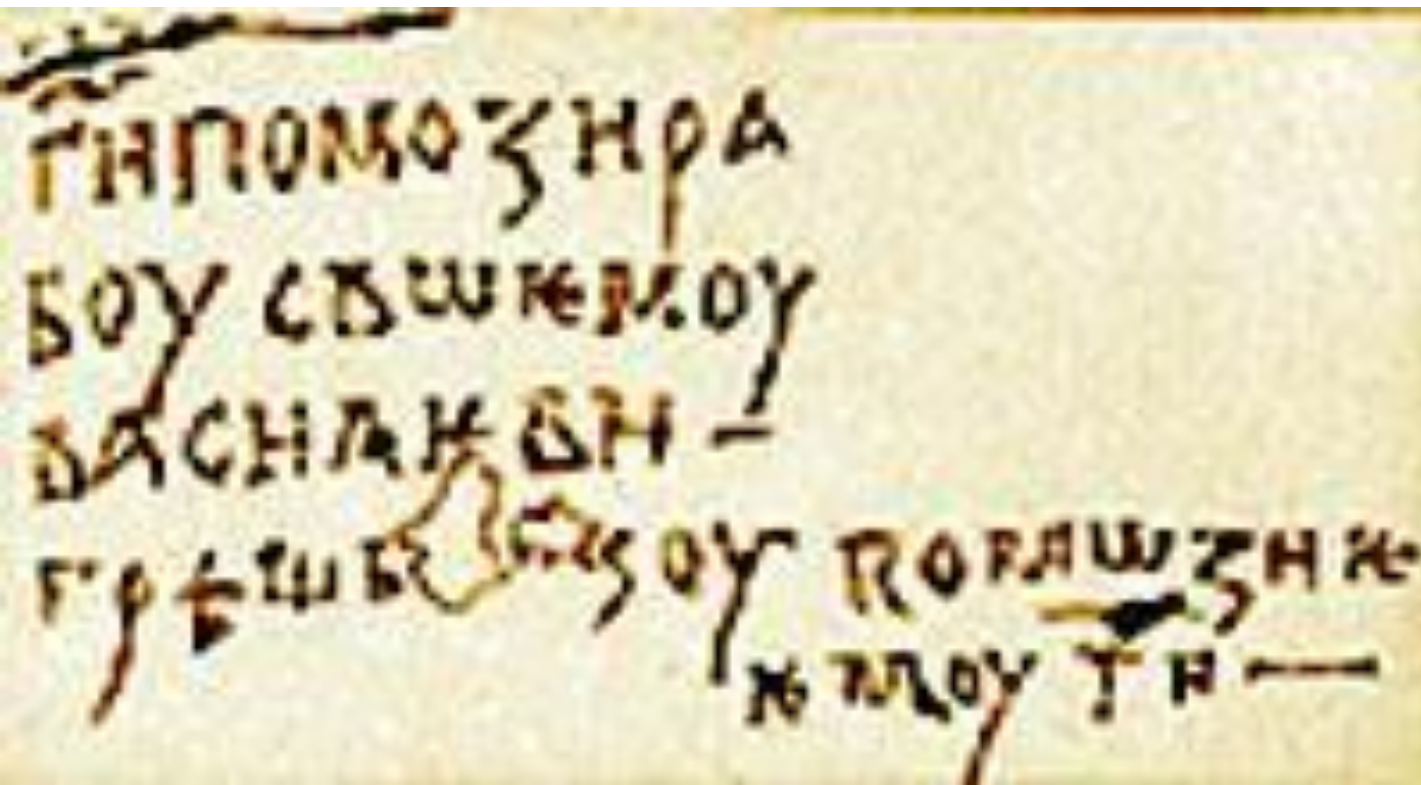 ГИПОМОЗИРА
БОУ СВѠѤМОУ
ВАСИЛКВИ –
ГРѢШЬ ПОМѠЗИ Ѥ
ѤМОУ ГИ —